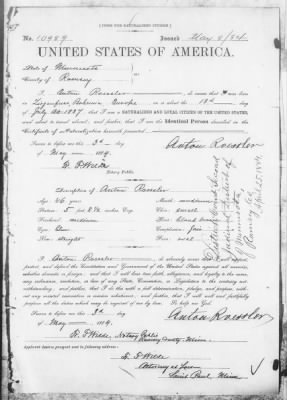 [FORM FOR NATURALIZED CITIZEN.]
No. 10989. Issued May 8/84
UNITED STATES OF AMERICA.
State of Minnesota
County of Ramsey
I, Anton Roessler, do swear that I was born
in Bohemia Europe on or about the day of
July 1837; that I am a NATURALIZED AND LOYAL CITIZEN OF THE UNITED STATES,
and about to travel abroad; and further, that I am the Identical Person described in the
Certificate of Naturalization herewith presented.
Sworn to before me this 3d
day of May 1884.
Anton Roessler
Notary Public.
Description of Anton Roessler
Age: 46 years
Mouth: medium
Stature: 5 feet
Chin: small
Forehead: medium
Hair:
Eyes:
Complexion: fair
Nose: straight
Face: oval
I, Anton Roessler, do solemnly swear that I will support,
protect, and defend the Constitution and Government of the United States against all enemies,
whether domestic or foreign; and that I will bear true faith, allegiance, and loyalty to the same,
any ordinance, resolution, or law of any State, Convention, or Legislature to the contrary not-
withstanding; and further, that I do this with a full determination, pledge, and purpose, without
any mental reservation or evasion whatsoever; and further, that I will well and faithfully
perform all the duties which may be required of me by law. So help me God.
Sworn to before me this 3d
day of May 1884.
Anton Roessler
Notary Public
Ramsey County, Minn.
Applicant desires passport sent to following address:
Attorney at Law
Saint Paul, Minn